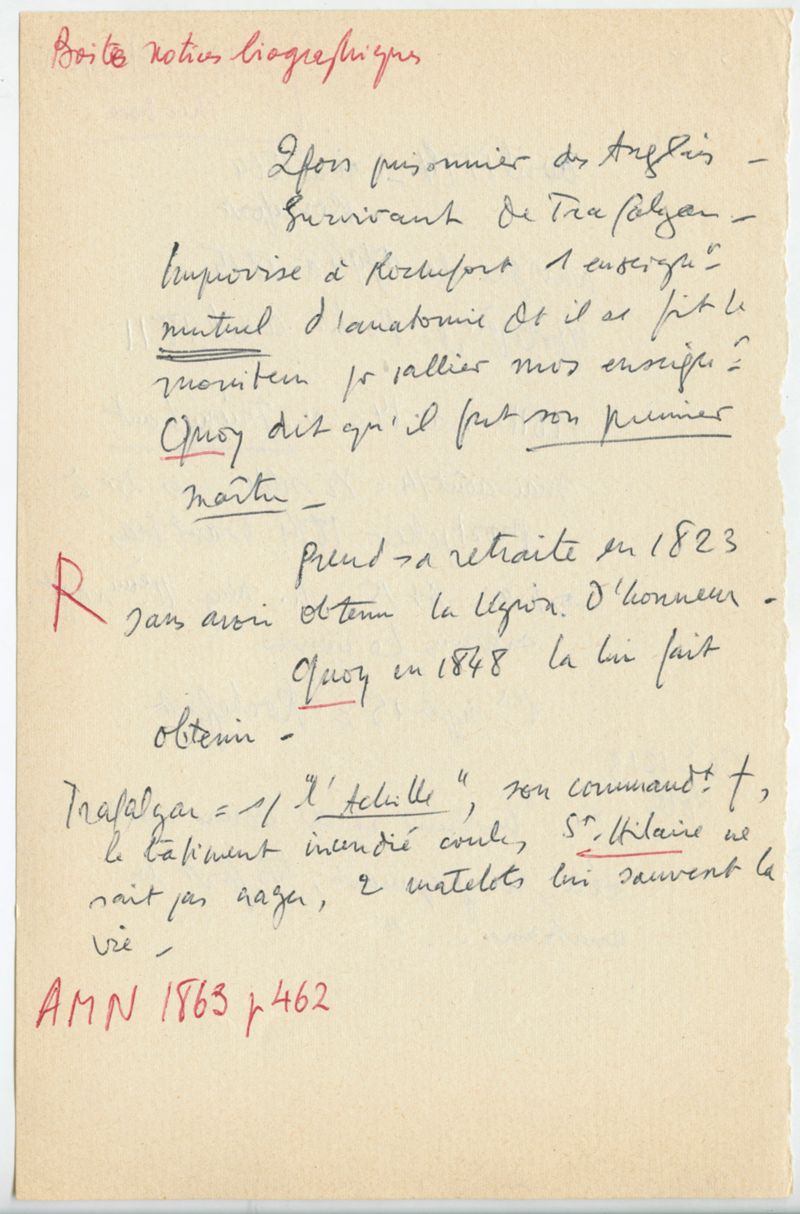 Boites notices biographiques
2 fois prisonnier des Anglais -
Survivant de Trafalgar -
Improvise à Rochefort l'enseignt
mutuel d'anatomie et il se fit le
moniteur pr rallier mos enseignt
Quoy dit qu'il fut son premier
maître -
prend sa retraite en 1823
R sans avoir obtenu la légion d'honneur -
Quoy en 1848 la lui fait
obtenir -
Trafalgar = s/ "l'Achille", son commandt †,
le bâtiment incendié coule, St. Hilaire ne
sait pas nager, 2 matelots lui sauvent la
vie -
AMN 1863 p 462